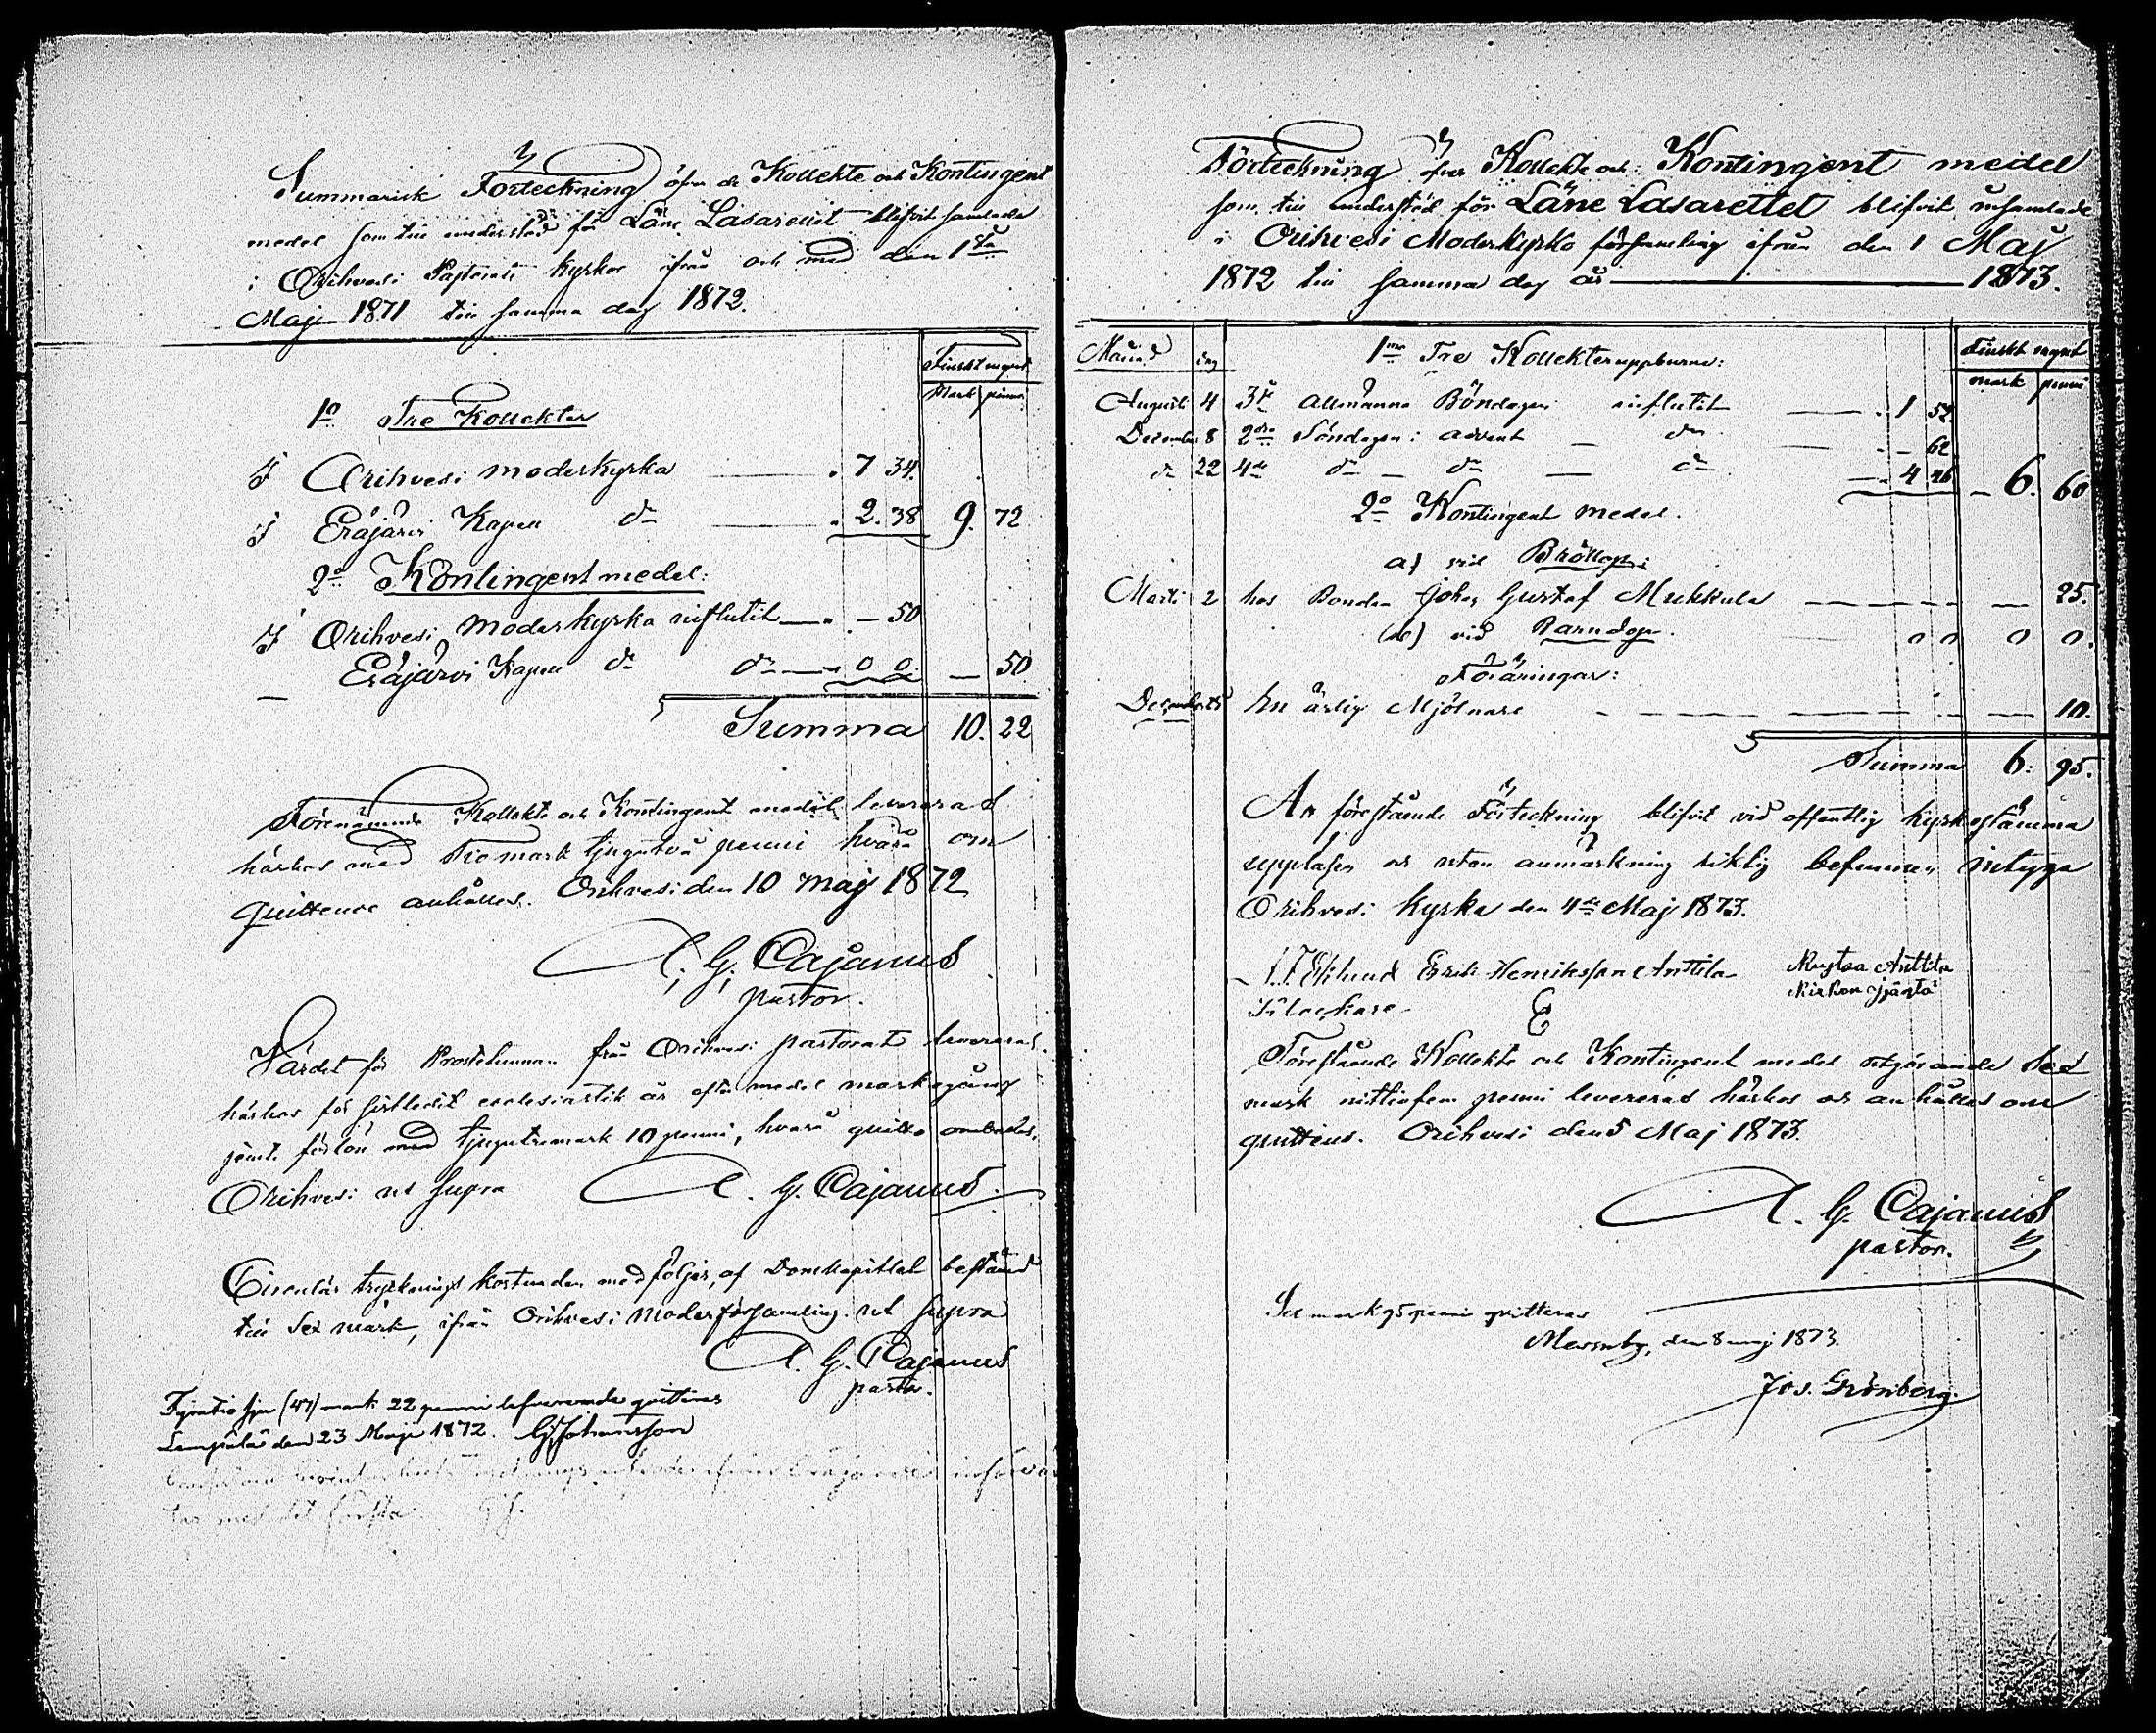 Summarisk Förteckning öfver de Kollekte och Kontingent
medel som till understöd för Läne Lasarettet blifvit samlade
i Orihvesi Pastorats kyrkor ifrån och med den 1sta
Maj 1871 till samma dag 1872.
Finskt mynt
Mark penni
1o Tre Kollekter
I Orihvesi moderkyrka 7 34.
I Eräjärvi Kapell do 2. 38 9. 72
2o Kontingent medel:
I Orihvesi Moderkyrka influtit — 50
Eräjärvi Kapell do do 0 0 — 50
Summa 10. 22
Förenämnde Kollekte och Kontingent medel levereras
härhos med Tio mark tjugutvå penni hvarå om
quittence anhålles. Orihvesi den 10 Maj 1872
A. G. Cajanus
pastor.
Värdet för Prostetunnan från Orihvesi pastorat levereras
härhos för förflutit ecclesiastik år efter medel markegång
jemte forlön med tjugutremark 10 penni, hvarå quitto anhålles.
Orihvesi ut supra A. G. Cajanus
Circulär tryckningskostnaden medföljer, af Domkapitlet bestämd
till Sex mark, ifrån Orihvesi Moderförsamling. ut supra
A. G. Cajanus
pastor.
Fyratiosju (47) mark 22 penni lefvererade qvitteras
Lempälä den 23 Maji 1872. G. Johansson
med det första. G. J.
Förteckning öfver Kollekte och Kontingent medel
som till understöd för Läne Lasarettet blifvit insamlade
i Orihvesi Moderkyrko församling ifrån den 1 Maj
1872 till samma dag år 1873.
Månad dag 1mo Tre Kollekter uppburne: Finskt mynt
mark penni
Augusti 4 3dje Allmänna Böndagen influtit 1 52
December 8 2dra Söndagen i advent do — 62
do 22 4de do do do 4 46 6. 60
2o Kontingent medel.
a) vid Bröllop:
Marti 2 hos Bonden Johan Gustaf Mukkula 25.
b) vid Barndop. 0 0 0 0.
Föräringar:
December 25 En ärlig Mjölnare 10.
Summa 6: 95.
At förestående Förteckning blifvit vid offentlig kyrkostämma
uppläsen och utan anmärkning riktig befunnen intyga
Orihvesi kyrka den 4de Maj 1873.
Eklund Erik Henriksson Anttila Kustaa Anttila
Klockare
E
Förestående Kollekte och Kontingent medel utgörande Sex
mark nittiofem penni levereras härhos och anhålles om
quittens. Orihvesi den 5 Maj 1873.
A. G. Cajanus
pastor.
Sex mark 95 penni qvitteras
Messuby, den 8 maj 1873.
Jos. Grönberg.